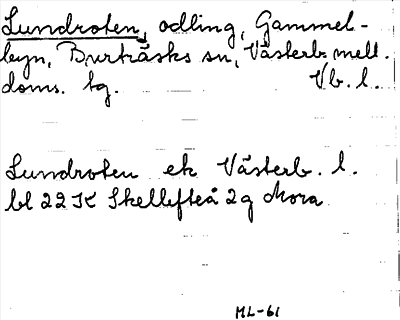 Lundroten, odling, Gammel-
byn, Burträsks sn, Västerb. mell.
doms. tg. Vb. l.
Lundroten ek Västerb. l.
bl 22 K Skellefteå 2 g Mora
ML-61